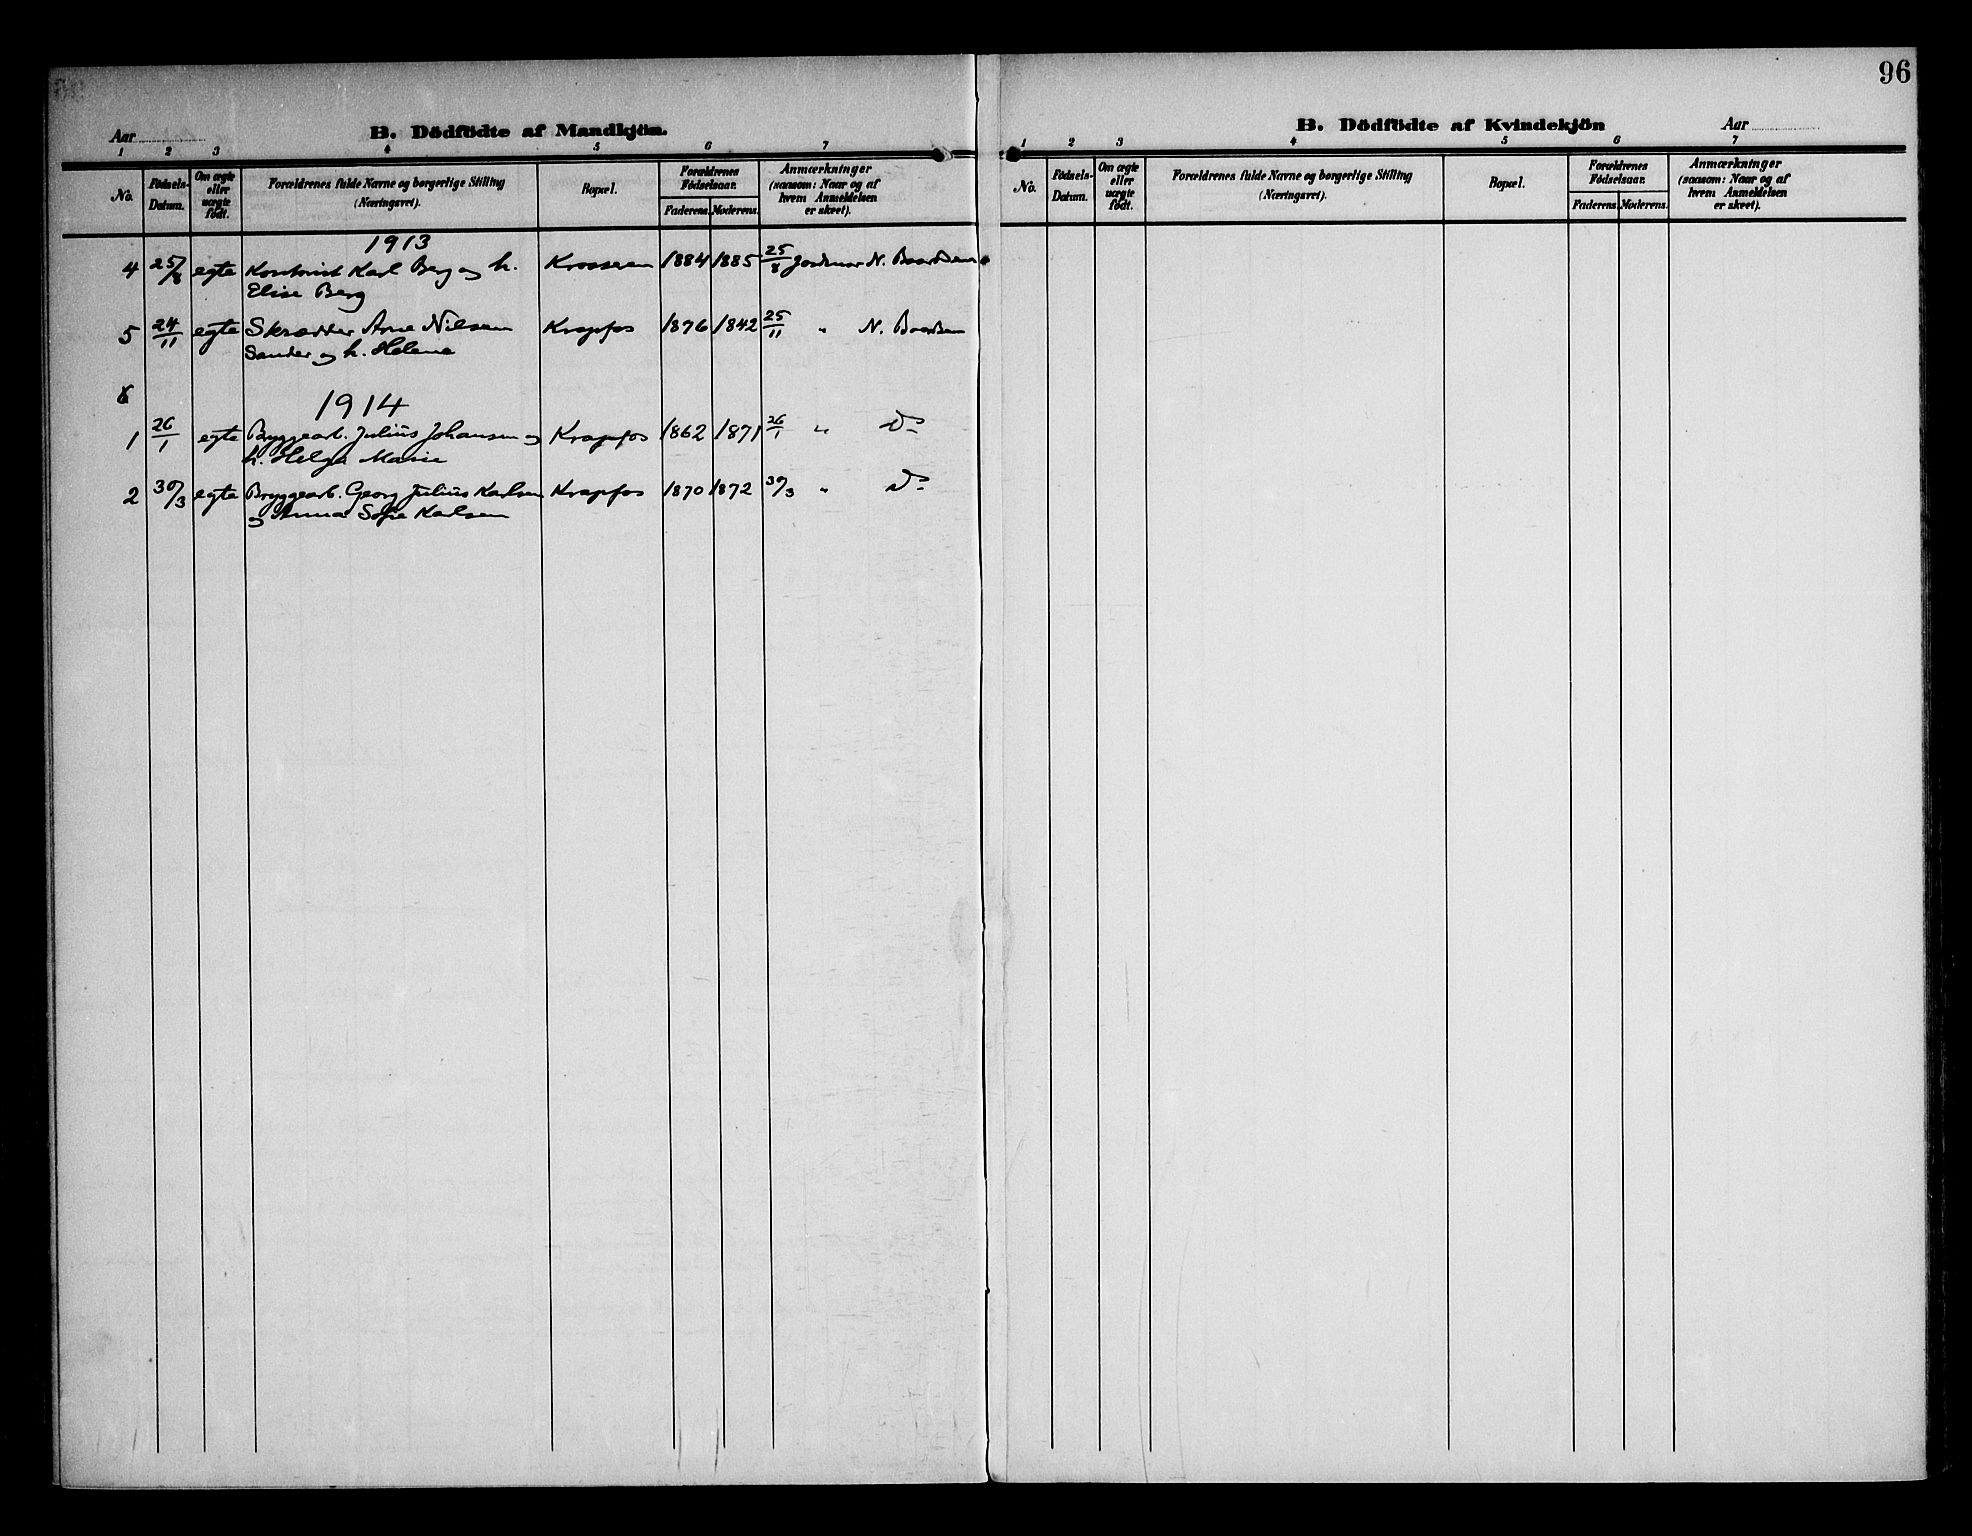 96
Aar B. Dödfödte af Mandkjön.
1 2 3 4 5 6 7
No. Födsels-Datum. Om ægte eller uægte födt. Forældrenes fulde Navne og borgerlige Stilling (Næringsvei). Bopæl. Forældrenes Födselsaar. Faderens. Moderens. Anmærkninger (saasom: Naar og af hvem Anmeldelsen er skeet).
1913
4 25/8 egte Kontorist Karl Berg og h. Krosseren 1884 1885 25/8 Jordmor N. Baardsen
Elise Berg
5 24/11 egte Skrædder Arne Nilsen Krapfos 1876 1842 25/11 " N. Baardsen
Sander og h. Helene
1914
1 26/1 egte Bryggearb. Julius Johansen og Krapfos 1862 1871 26/1 " Do
h. Helga Marie
2 30/3 egte Bryggearb. Georg Julius Karlsen Krapfos 1870 1872 30/3 " Do
og Anna Sofie Karlsen
B. Dödfödte af Kvindekjön Aar
1 2 3 4 5 6 7
No. Födsels-Datum. Om ægte eller uægte födt. Forældrenes fulde Navne og borgerlige Stilling (Næringsvei). Bopæl. Forældrenes Födselsaar. Faderens. Moderens. Anmærkninger (saasom: Naar og af hvem Anmeldelsen er skeet).